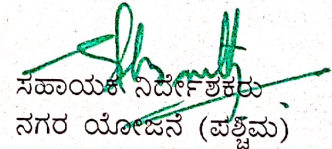 ಸಹಾಯಕ ನಿರ್ದೇಶಕರು
ನಗರ ಯೋಜನೆ (ಪಶ್ಚಿಮ)